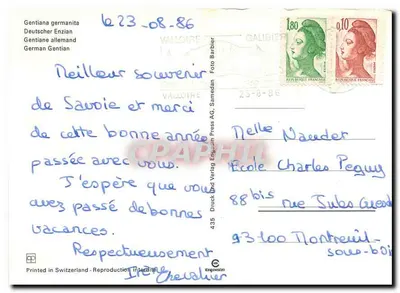 Gentiana germanita
Deutscher Enzian
Gentiane allemand
German Gentian
le 23-08-86
Meilleur souvenir
de Savoie et merci
de cette bonne année
passée avec vous.
J'espère que vous
avez passé de bonnes
vacances.
Respectueusement
Irène Chevalier
Printed in Switzerland - Reproduction interdite
435 Druck und Verlag Engadin Press AG, Samedan Foto Barbier
1,80
0,10
VALLOIRE
GALIBIER
VALLOIRE
25-8-86
Melle Nauder
Ecole Charles Peguy
88 bis rue Jules Guesde
93100 Montreuil
sous-bois